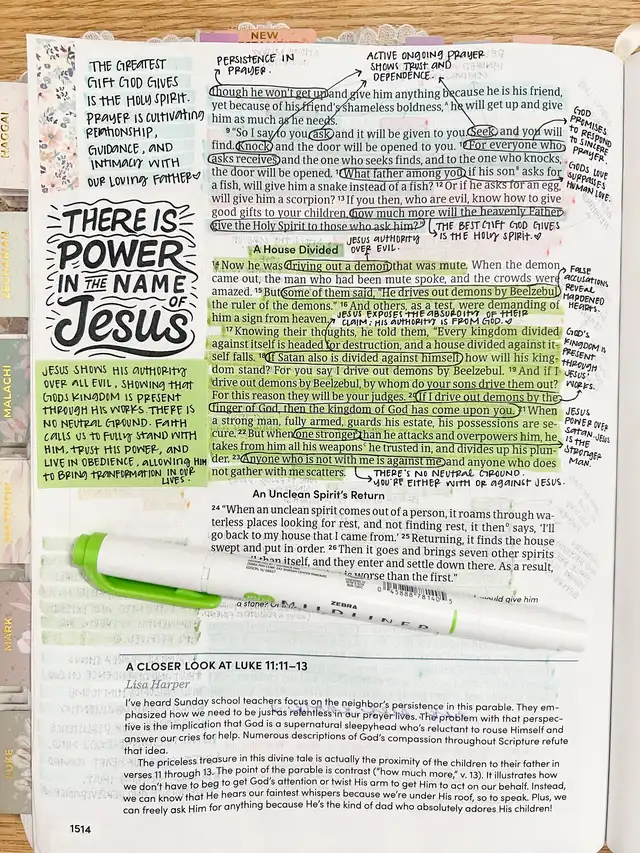 NEW
HAGGAI
ZECHARIAH
MALACHI
MATTHEW
MARK
LUKE
THE GREATEST
GIFT GOD GIVES
IS THE HOLY SPIRIT.
PRAYER IS CULTIVATING
RELATIONSHIP,
GUIDANCE, AND
INTIMACY WITH
OUR LOVING FATHER♡
THERE IS
POWER
IN THE NAME
OF
Jesus
JESUS SHOWS HIS AUTHORITY
OVER ALL EVIL, SHOWING THAT
GODS KINGDOM IS PRESENT
THROUGH HIS WORKS. THERE IS
NO NEUTRAL GROUND. FAITH
CALLS US TO FULLY STAND WITH
HIM, TRUST HIS POWER, AND
LIVE IN OBEDIENCE, ALLOWING HIM
TO BRING TRANSFORMATION IN OUR
LIVES.
PERSISTENCE IN
PRAYER.
ACTIVE ONGOING PRAYER
SHOWS TRUST AND
DEPENDENCE.
though he won't get up and give him anything because he is his friend,
yet because of his friend's shameless boldness, he will get up and give
him as much as he needs.
9 "So I say to you, ask, and it will be given to you. Seek, and you will
find. Knock, and the door will be opened to you. 10 For everyone who
asks receives, and the one who seeks finds, and to the one who knocks,
the door will be opened. 11 What father among you, if his son asks for
a fish, will give him a snake instead of a fish? 12 Or if he asks for an egg,
will give him a scorpion? 13 If you then, who are evil, know how to give
good gifts to your children, how much more will the heavenly Father
give the Holy Spirit to those who ask him?"
GOD
PROMISES
TO RESPOND
TO SINCERE
PRAYER.
GODS LOVE
SURPASSES
HUMAN LOVE.
THE BEST GIFT GOD GIVES
IS THE HOLY SPIRIT.♡
JESUS AUTHORITY
OVER EVIL.
A House Divided
14 Now he was driving out a demon that was mute. When the demon
came out, the man who had been mute spoke, and the crowds were
amazed. 15 But some of them said, "He drives out demons by Beelzebul,
the ruler of the demons." 16 And others, as a test, were demanding of
him a sign from heaven.
JESUS EXPOSES THE ABSURDITY OF THEIR
CLAIM; HIS AUTHORITY IS FROM GOD.♡
17 Knowing their thoughts, he told them, "Every kingdom divided
against itself is headed for destruction, and a house divided against it-
self falls. 18 If Satan also is divided against himself, how will his king-
dom stand? For you say I drive out demons by Beelzebul. 19 And if I
drive out demons by Beelzebul, by whom do your sons drive them out?
For this reason they will be your judges. 20 If I drive out demons by the
finger of God, then the kingdom of God has come upon you. 21 When
a strong man, fully armed, guards his estate, his possessions are se-
cure. 22 But when one stronger than he attacks and overpowers him, he
takes from him all his weapons he trusted in, and divides up his plun-
der. 23 Anyone who is not with me is against me, and anyone who does
not gather with me scatters.
FALSE
ACCUSATIONS
REVEAL
HARDENED
HEARTS.
GOD'S
KINGDOM IS
PRESENT
THROUGH
JESUS'
WORKS.
JESUS
POWER OVER
SATAN. JESUS
IS THE
STRONGER
MAN.
THERE'S NO NEUTRAL GROUND.
YOU'RE EITHER WITH OR AGAINST JESUS.
An Unclean Spirit's Return
24 "When an unclean spirit comes out of a person, it roams through wa-
terless places looking for rest, and not finding rest, it then says, 'I'll
go back to my house that I came from.' 25 Returning, it finds the house
swept and put in order. 26 Then it goes and brings seven other spirits
than itself, and they enter and settle down there. As a result,
is worse than the first."
would give him
a stone?
ZEBRA
MILDLINER
A CLOSER LOOK AT LUKE 11:11–13
Lisa Harper
I've heard Sunday school teachers focus on the neighbor's persistence in this parable. They em-
phasized how we need to be just as relentless in our prayer lives. The problem with that perspec-
tive is the implication that God is a supernatural sleepyhead who's reluctant to rouse Himself and
answer our cries for help. Numerous descriptions of God's compassion throughout Scripture refute
that idea.
The priceless treasure in this divine tale is actually the proximity of the children to their father in
verses 11 through 13. The point of the parable is contrast ("how much more," v. 13). It illustrates how
we don't have to beg to get God's attention or twist His arm to get Him to act on our behalf. Instead,
we can know that He hears our faintest whispers because we're under His roof, so to speak. Plus, we
can freely ask Him for anything because He's the kind of dad who absolutely adores His children!
1514